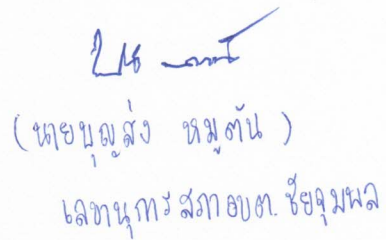 (นายบุญส่ง หมูตัน)
เลขานุการสภาอบต. ชัยจุมพล